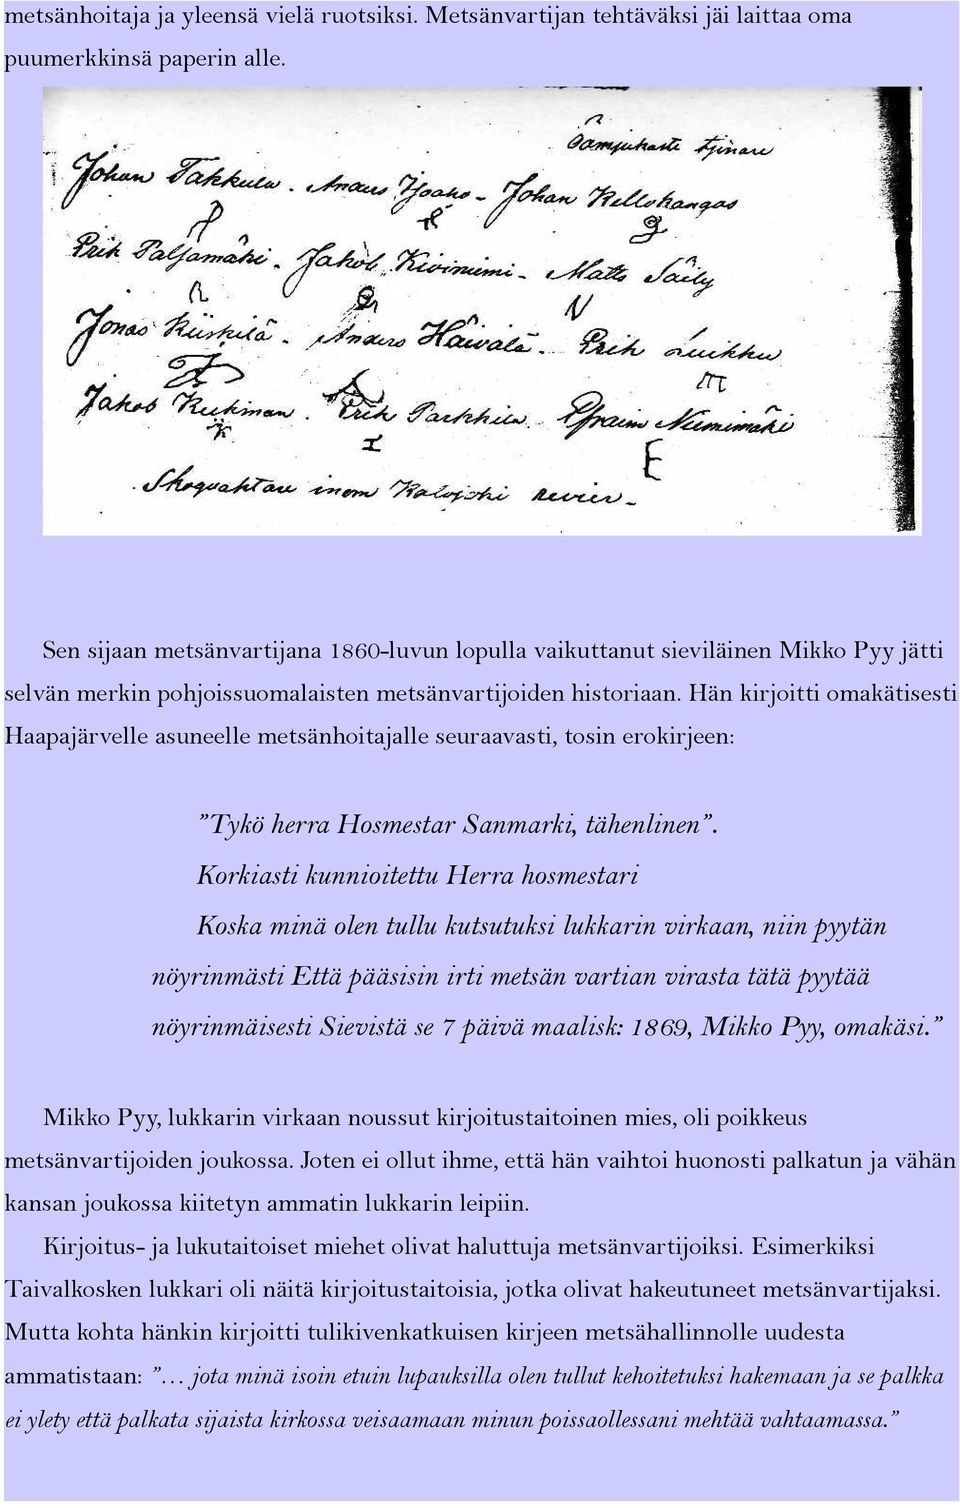 metsänhoitaja ja yleensä vielä ruotsiksi. Metsänvartijan tehtäväksi jäi laittaa oma
puumerkkinsä paperin alle.
tjenare
Johan Takkula. Anders Ijoaho - Johan Kellokangas
Erik Paljamäki. Jakob Kiviniemi - Matts Säily
Jonas Kiiskilä. Anders Häivälä. Erik Luikku
Jakob Kukman. Erik Parkkila. Efraim Nurmimäki
E
Skogvaktare inom Kalajoki revier.
Sen sijaan metsänvartijana 1860-luvun lopulla vaikuttanut sieviläinen Mikko Pyy jätti
selvän merkin pohjoissuomalaisten metsänvartijoiden historiaan. Hän kirjoitti omakätisesti
Haapajärvelle asuneelle metsänhoitajalle seuraavasti, tosin erokirjeen:
”Tykö herra Hosmestar Sanmarki, tähenlinen”.
Korkiasti kunnioitettu Herra hosmestari
Koska minä olen tullu kutsutuksi lukkarin virkaan, niin pyytän
nöyrinmästi Että pääsisin irti metsän vartian virasta tätä pyytää
nöyrinmäisesti Sievistä se 7 päivä maalisk: 1869, Mikko Pyy, omakäsi.”
Mikko Pyy, lukkarin virkaan noussut kirjoitustaitoinen mies, oli poikkeus
metsänvartijoiden joukossa. Joten ei ollut ihme, että hän vaihtoi huonosti palkatun ja vähän
kansan joukossa kiitetyn ammatin lukkarin leipiin.
Kirjoitus- ja lukutaitoiset miehet olivat haluttuja metsänvartijoiksi. Esimerkiksi
Taivalkosken lukkari oli näitä kirjoitustaitoisia, jotka olivat hakeutuneet metsänvartijaksi.
Mutta kohta hänkin kirjoitti tulikivenkatkuisen kirjeen metsähallinnolle uudesta
ammatistaan: ”… jota minä isoin etuin lupauksilla olen tullut kehoitetuksi hakemaan ja se palkka
ei ylety että palkata sijaista kirkossa veisaamaan minun poissaollessani mehtää vahtaamassa.”